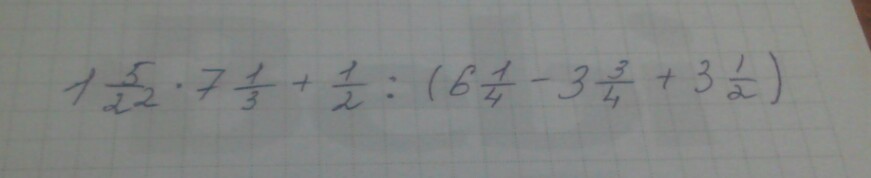 1 5/22 · 7 1/3 + 1/2 : (6 1/4 - 3 3/4 + 3 1/2)